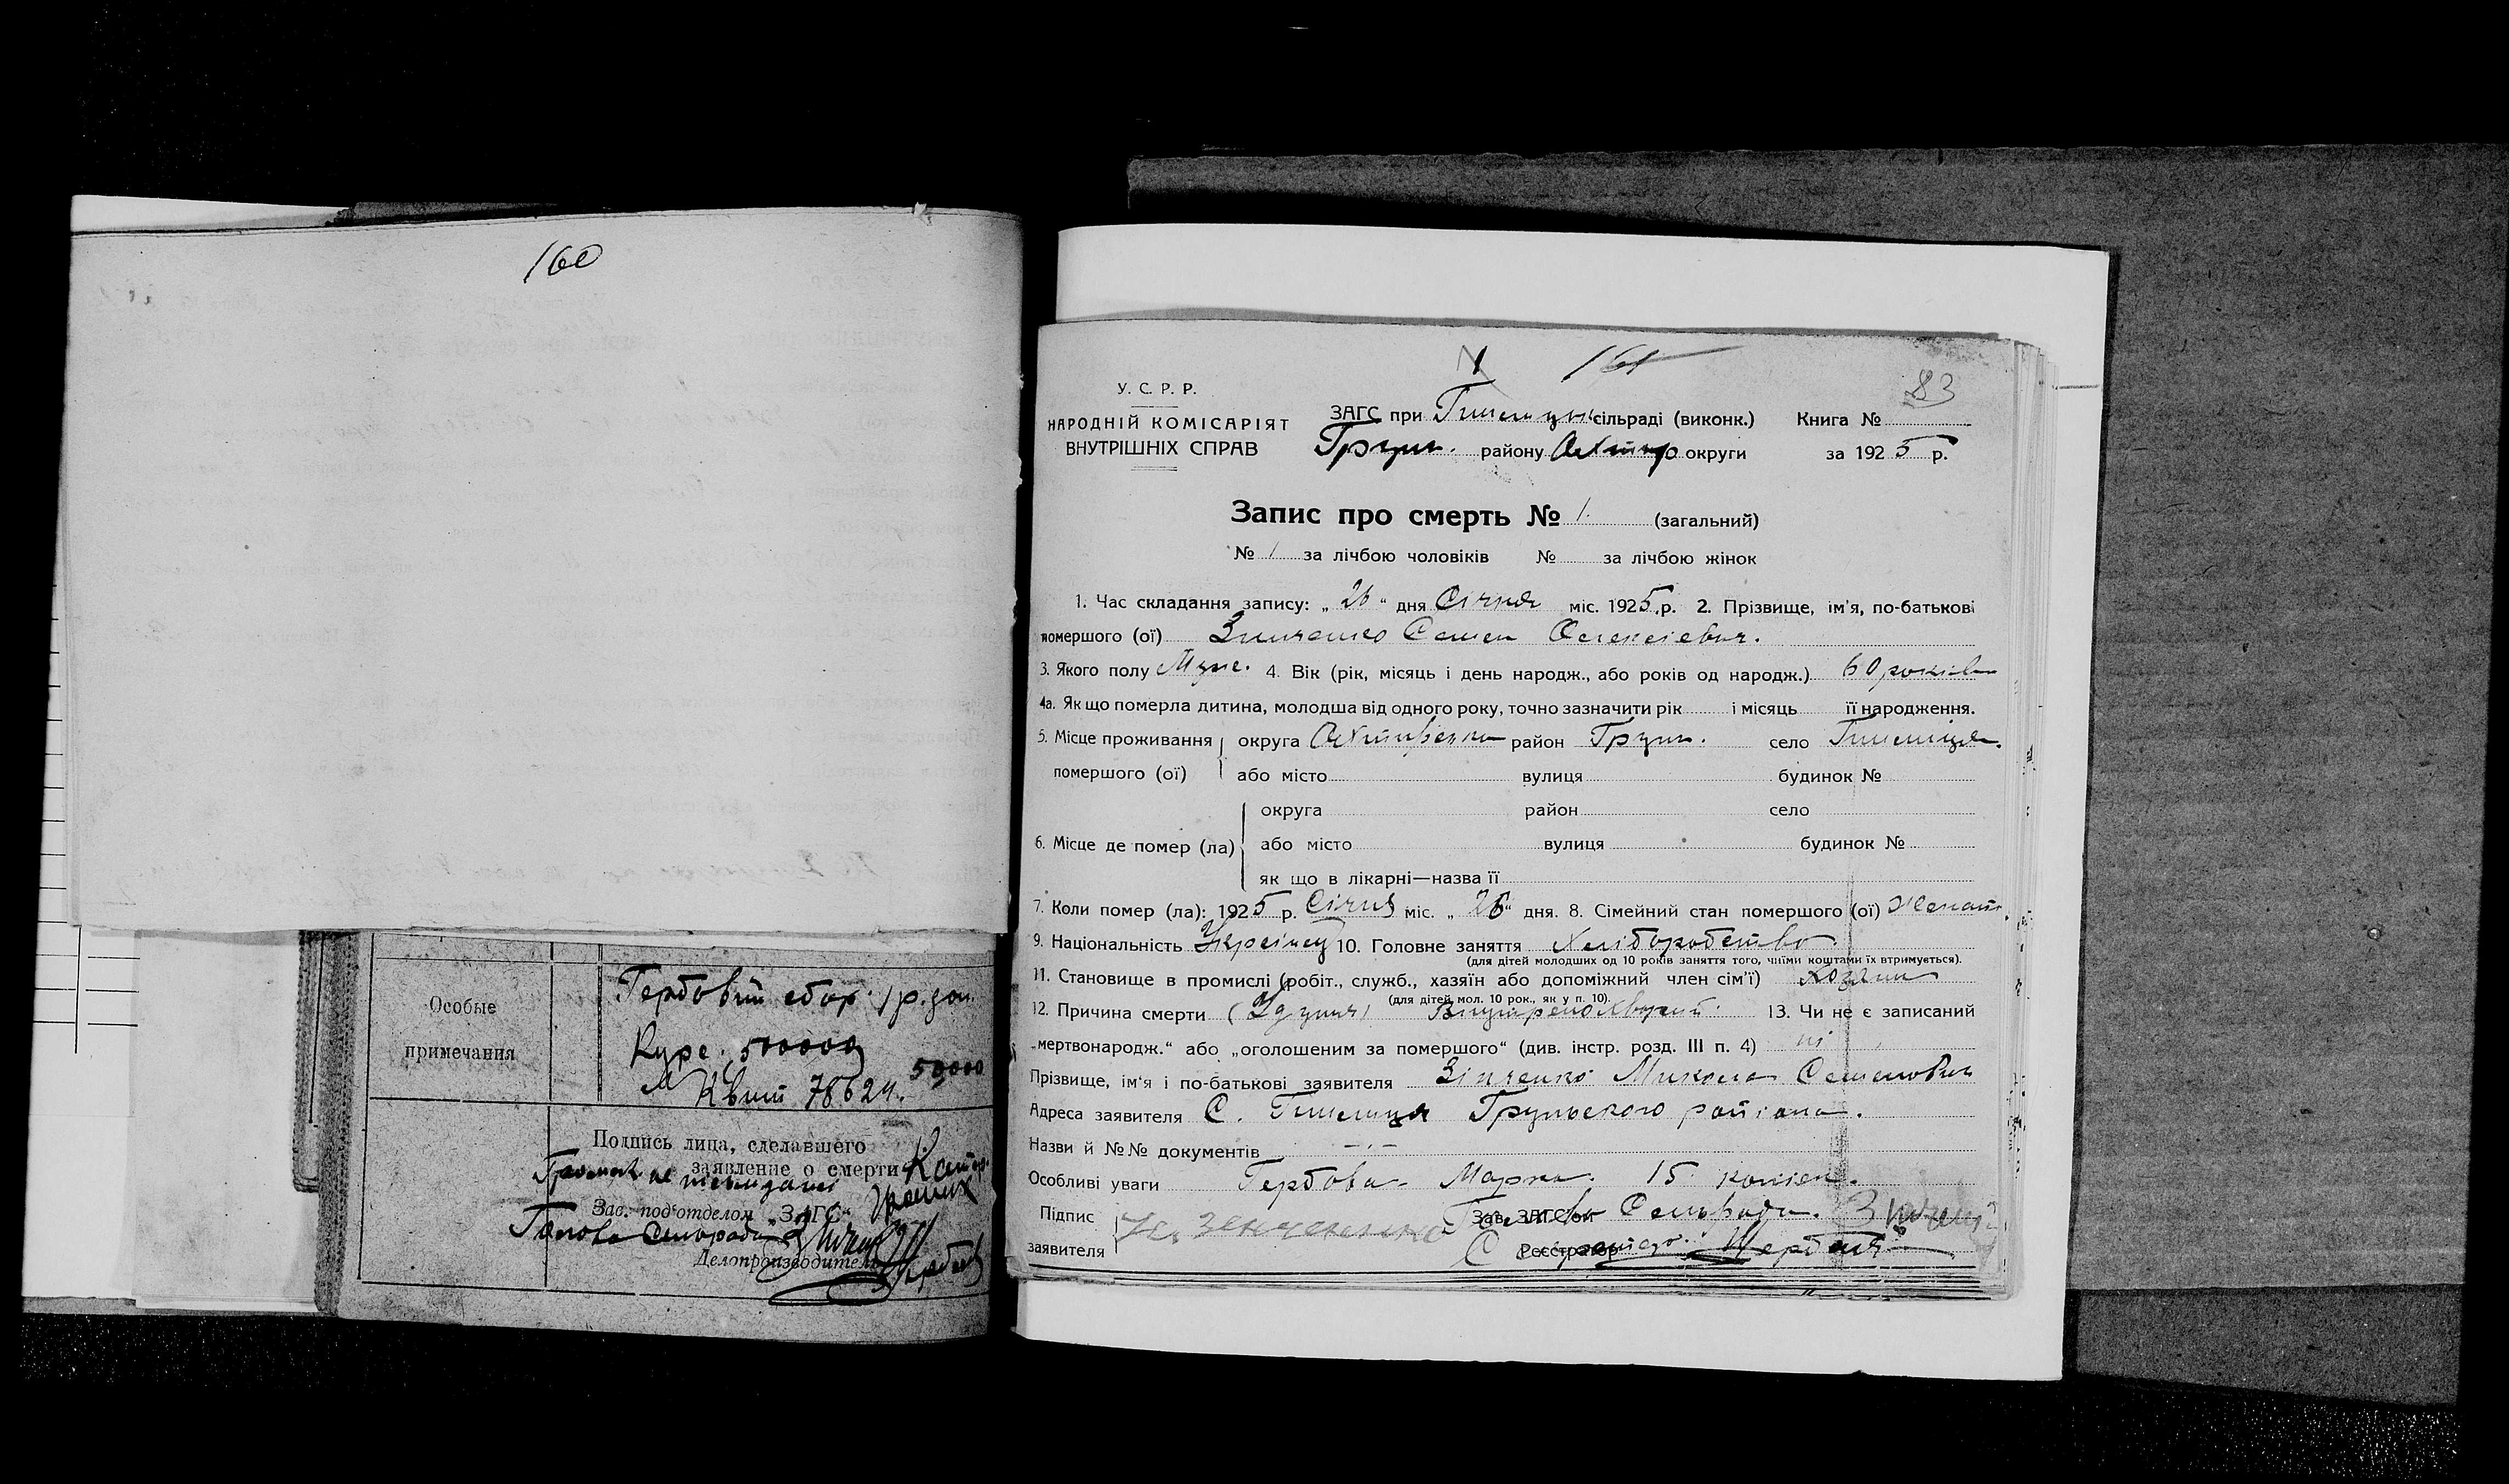 160
Особые
примечания
Гербовий сбор. 1 р. зол.
Курс. 500000
50000
Квит 78624.
Подпись лица, сделавшего
заявление о смерти
Зав. подотделом „ЗАГС“
Голова Сельради
Делопроизводитель
№ 1 161
83
У. С. Р. Р.
НАРОДНІЙ КОМІСАРІЯТ
ВНУТРІШНІХ СПРАВ
ЗАГС при сільраді (виконк.) Книга №
Грун. району Охтир округи за 1925 р.
Запис про смерть № 1. (загальний)
№ 1 за лічбою чоловіків № за лічбою жінок
1. Час складання запису: „26“ дня Січня міс. 1925 р. 2. Прізвище, ім'я, по-батькові
помершого (ої) Зинченко Семен Олексієвич.
3. Якого полу Муж. 4. Вік (рік, місяць і день народж., або років од народж.) 60 років
4а. Як що померла дитина, молодша від одного року, точно зазначити рік і місяць її народження.
5. Місце проживання округа район Грун. село
помершого (ої) або місто вулиця будинок №
округа район село
6. Місце де помер (ла) або місто вулиця будинок №
як що в лікарні—назва її
7. Коли помер (ла): 1925 р. Січня міс. „26“ дня. 8. Сімейний стан помершого (ої) Женат.
9. Національність Украінец 10. Головне заняття Хліборобство.
(для дітей молодших од 10 років заняття того, чиїми коштами їх втримується).
11. Становище в промислі (робіт., служб., хазяїн або допоміжний член сім'ї) Хозяин
(для дітей мол. 10 рок., як у п. 10).
12. Причина смерти 13. Чи не є записаний
„мертвонародж.“ або „оголошеним за помершого“ (див. інстр. розд. III п. 4) ні
Прізвище, ім'я і по-батькові заявителя Зінченко Микола Семенович
Адреса заявителя С. Грунського района.
Назви й №№ документів
Особливі уваги Гербова Марка 15 копієк.
Підпис Зав. ЗАГС'ом Голова Сельради.
заявителя Реєстратор Секретарь